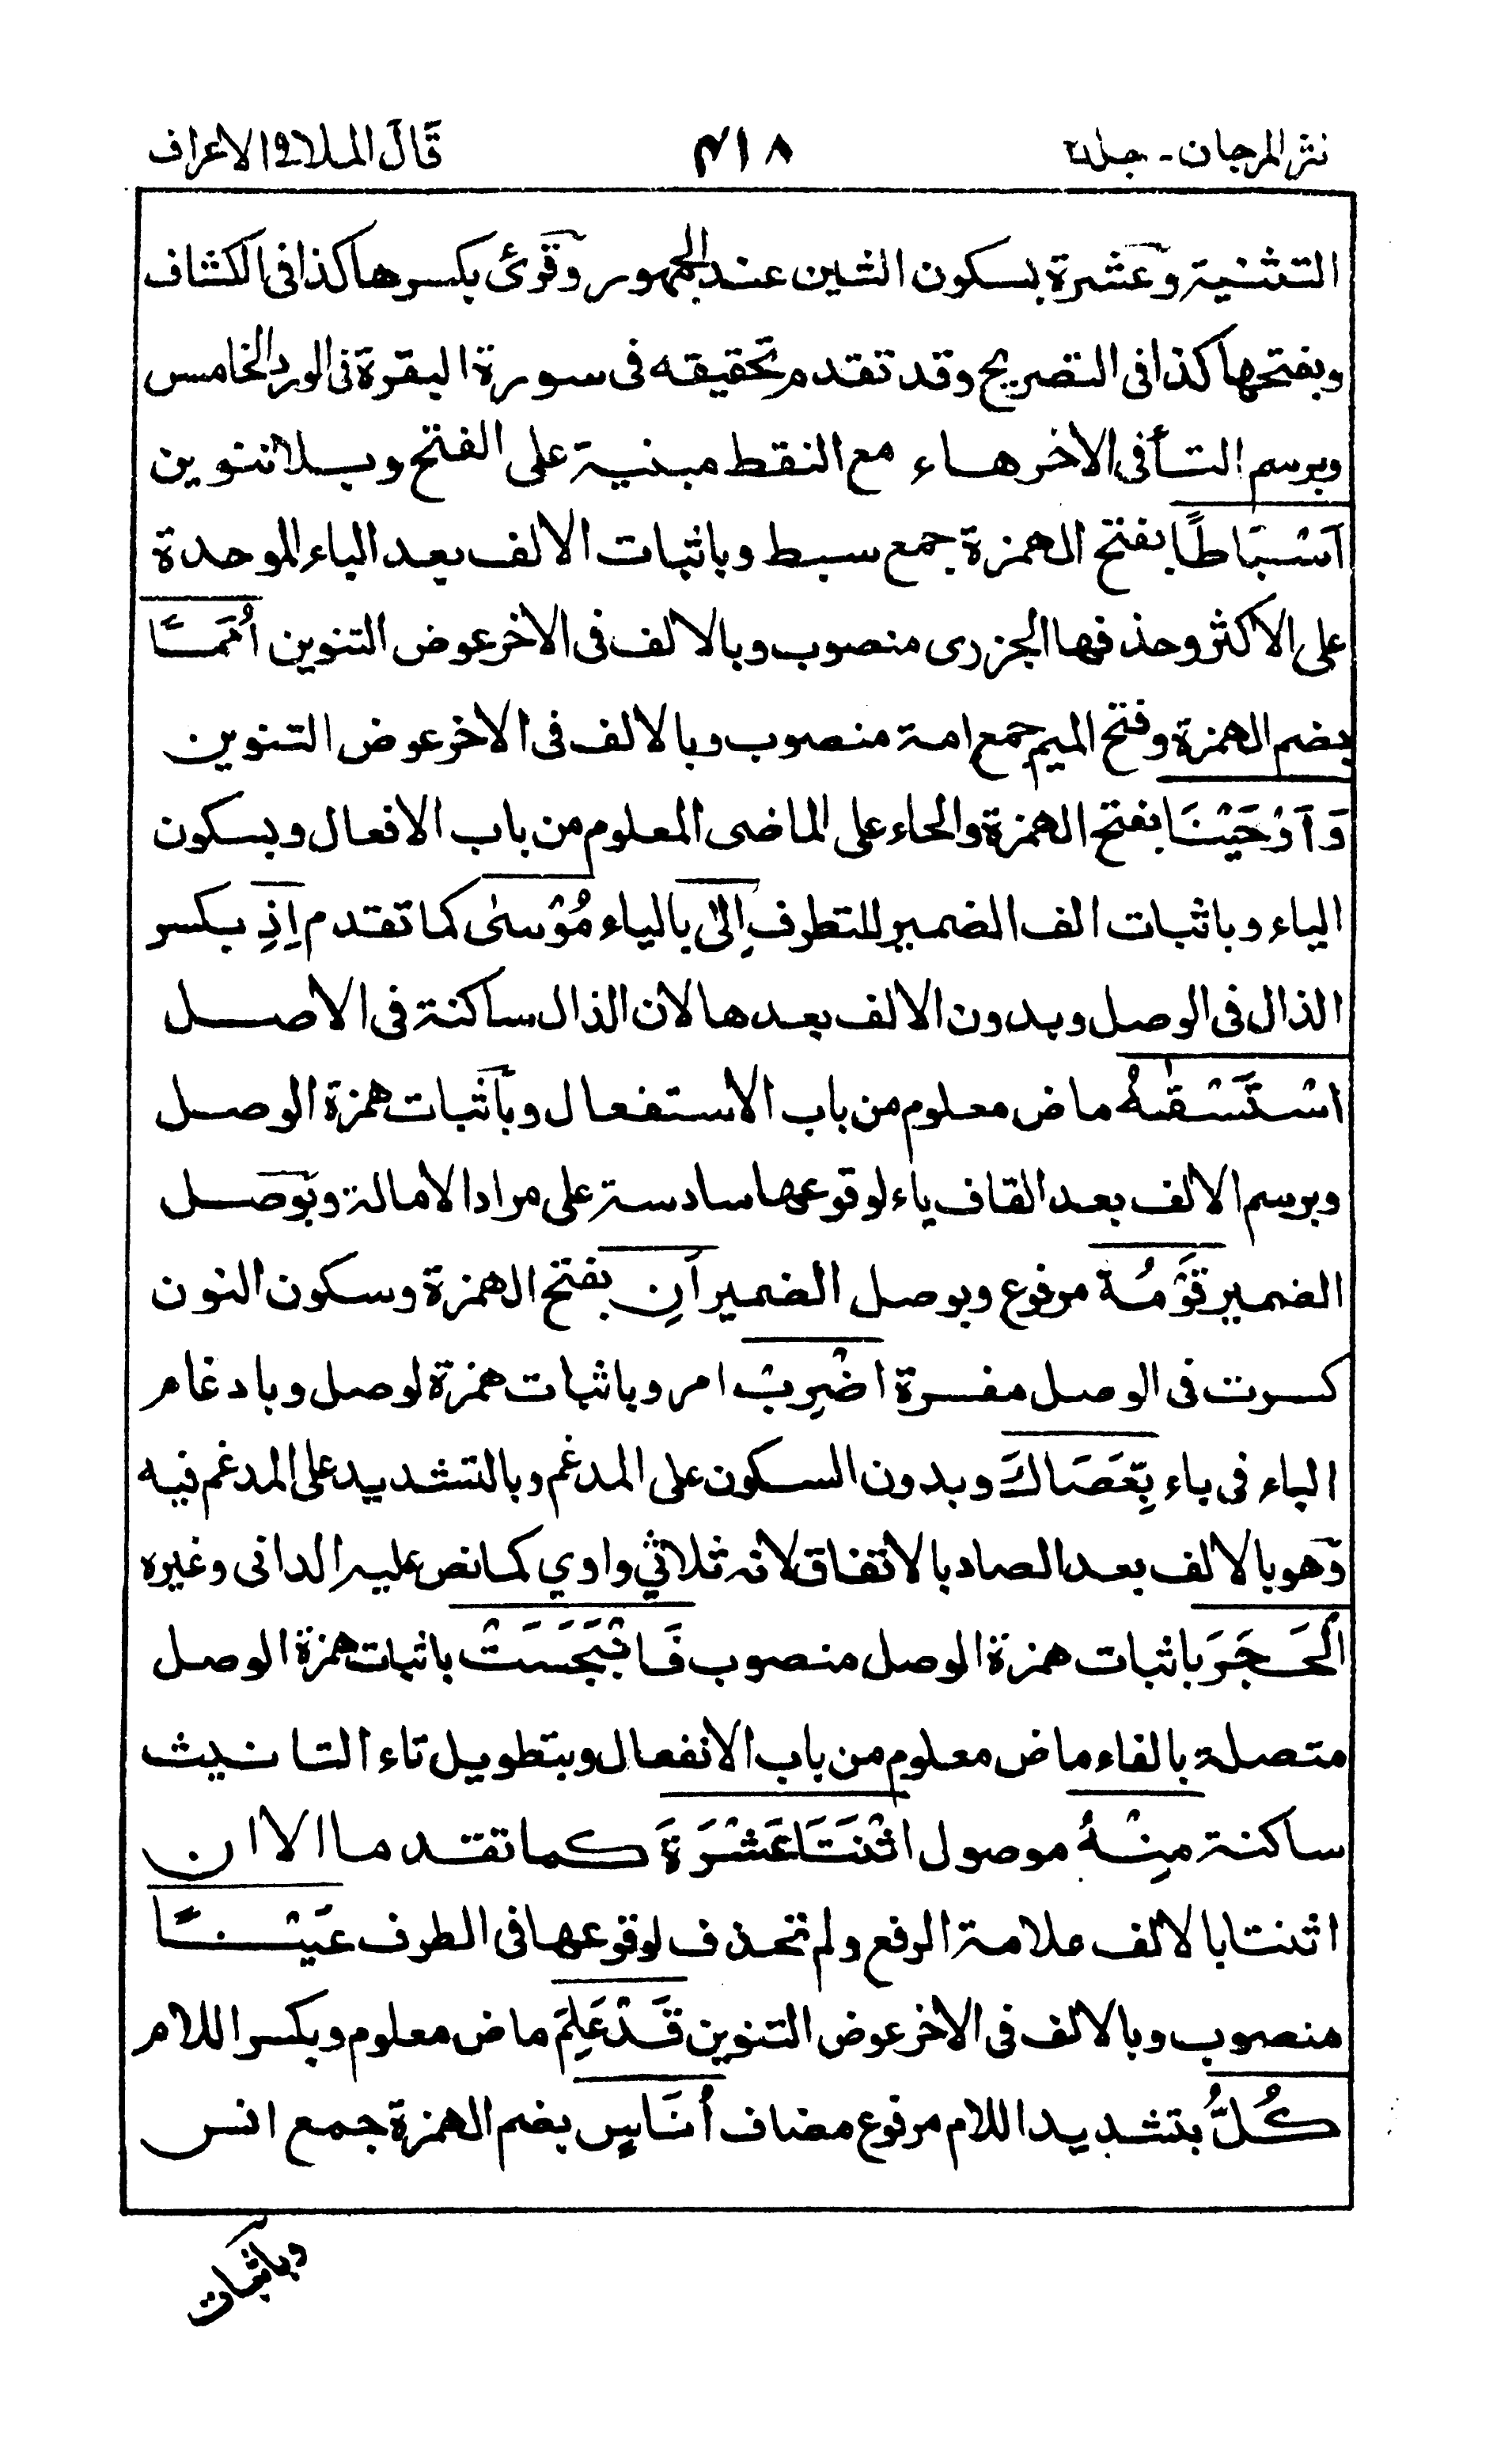 نثر المرجان - جلد٢
٤١٨
قَالَ الملا ٩ الاعراف
التثنية وعشرة بسكون الشين عند الجمهور وقرئ بكسرها كذا فى الكشاف
وبفتحها كذا فى التصريح وقد تقدم تحقيقه فى سورة البقرة فى الورد الخامس
وبرسم التأ فى الاخر هاء مع النقط مبنية على الفتح وبلا تنوين
اَسْبَاطًا بفتح الهمزة جمع سبط وباثبات الالف بعد الباء الموحدة
على الاكثر وحذفها الجزرى منصوب وبالالف فى الاخر عوض التنوين اُمَمًا
بضم الهمزة وفتح الميم جمع امة منصوب وبالالف فى الاخر عوض التنوين
وَاَوْحَيْنَا بفتح الهمزة والحاء على الماضى المعلوم من باب الافعال وبسكون
الياء وباثبات الف الضمير للتطرف اِلىٰ بالياء مُوْسىٰ كما تقدم اِذِ بكسر
الذال فى الوصل وبدون الالف بعدها لان الذال ساكنة فى الاصل
اسْتَسْقٰىهُ ماض معلوم من باب الاستفعال وباثبات همزة الوصل
وبرسم الالف بعد القاف ياء لوقوعها سادسة على مراد الامالة وبوصل
الضمير قَوْمُهٗ مرفوع وبوصل الضمير اَنِ بفتح الهمزة وسكون النون
كسرت فى الوصل مفسرة اضْرِبْ امر وباثبات همزة لوصل وبادغام
الباء فى باء بِّعَصَاكَ وبدون السكون على المدغم وبالتشديد على المدغم فيه
وهو بالالف بعد الصاد بالاتفاق لانه ثلاثي واوي كما نص عليه الدانى وغيره
الْحَجَرَ باثبات همزة الوصل منصوب فَانْبَجَسَتْ باثبات همزة الوصل
متصلة بالفاء ماض معلوم من باب الانفعال وبتطويل تاء التانيث
ساكنة مِنْهُ موصول اثْنَتَا عَشْرَةَ كما تقدما الا ان
اثنتا بالالف علامة الرفع ولم تحذف لوقوعها فى الطرف عَيْنًا
منصوب وبالالف فى الاخر عوض التنوين قَدْ عَلِمَ ماض معلوم وبكسر اللام
كُلُّ بتشديد اللام مرفوع مضاف اُنَاسٍ بضم الهمزة جمع انس
وباثبات